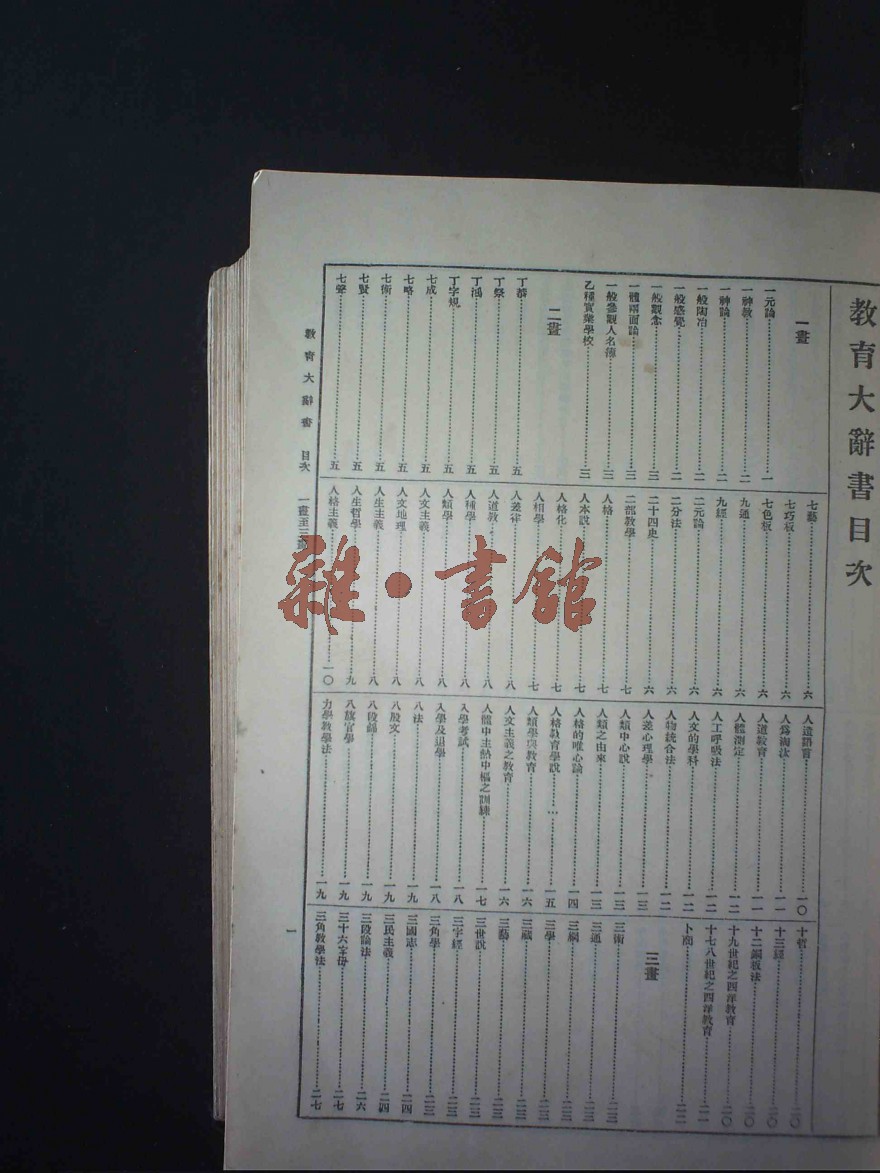 教育大辭書目次
一畫
一元論……一
一神教……二
一神論……二
一般陶冶……二
一般感覺……二
一般觀念……三
一體兩面論……三
一般參觀人名簿……三
乙種實業學校……三
二畫
丁慕……五
丁祭……五
丁鴻……五
丁字規……五
七成……五
七略……五
七術……五
七賢……五
七聲……五
七藝……六
七巧板……六
七色板……六
九通……六
九經……六
二元論……六
二分法……六
二十四史……六
二部教學……七
人格……七
人本說……七
人格化……七
人相學……七
人差律……八
人道教……八
人種學……八
人類學……八
人文主義……八
人文地理……八
人生主義……八
人生哲學……九
人格主義……一〇
人道語言……一〇
人為淘汰……一一
人道教育……一一
人體測定……一二
人工呼吸法……一二
人文的學科……一二
人物統合法……一二
人差心理學……一三
人類中心說……一三
人類之由來……一三
人格的唯心論……一四
人格教育學說……一五
人類學與教育……一六
人文主義之教育……一六
人體中主熱中樞之訓練……一七
入學考試……一八
入學及退學……一八
八法……一九
八股文……一九
八段錦……一九
八旗官學……一九
力學教學法……一九
十哲……二〇
十三經……二〇
十二銅板法……二〇
十九世紀之西洋教育……二〇
十七八世紀之西洋教育……二一
卜商……二二
三畫
三術……二三
三通……二三
三綱……二三
三學……二三
三藏……二三
三藝……二三
三世說……二三
三字經……二三
三角學……二三
三國志……二四
三民主義……二四
三段論法……二六
三十六字母……二七
三角教學法……二七
教育大辭書 目次 一畫至三畫
一
雜·書館